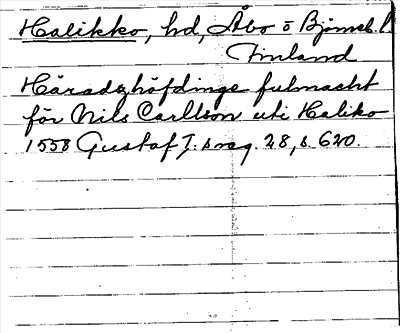 Halikko, hd, Åbo ö Björneb. l.
Finland
Häradzhöfdinge fulmacht
för Nils Carllson uti Haliko
1558 Gustaf I:s reg. 28, s. 620.